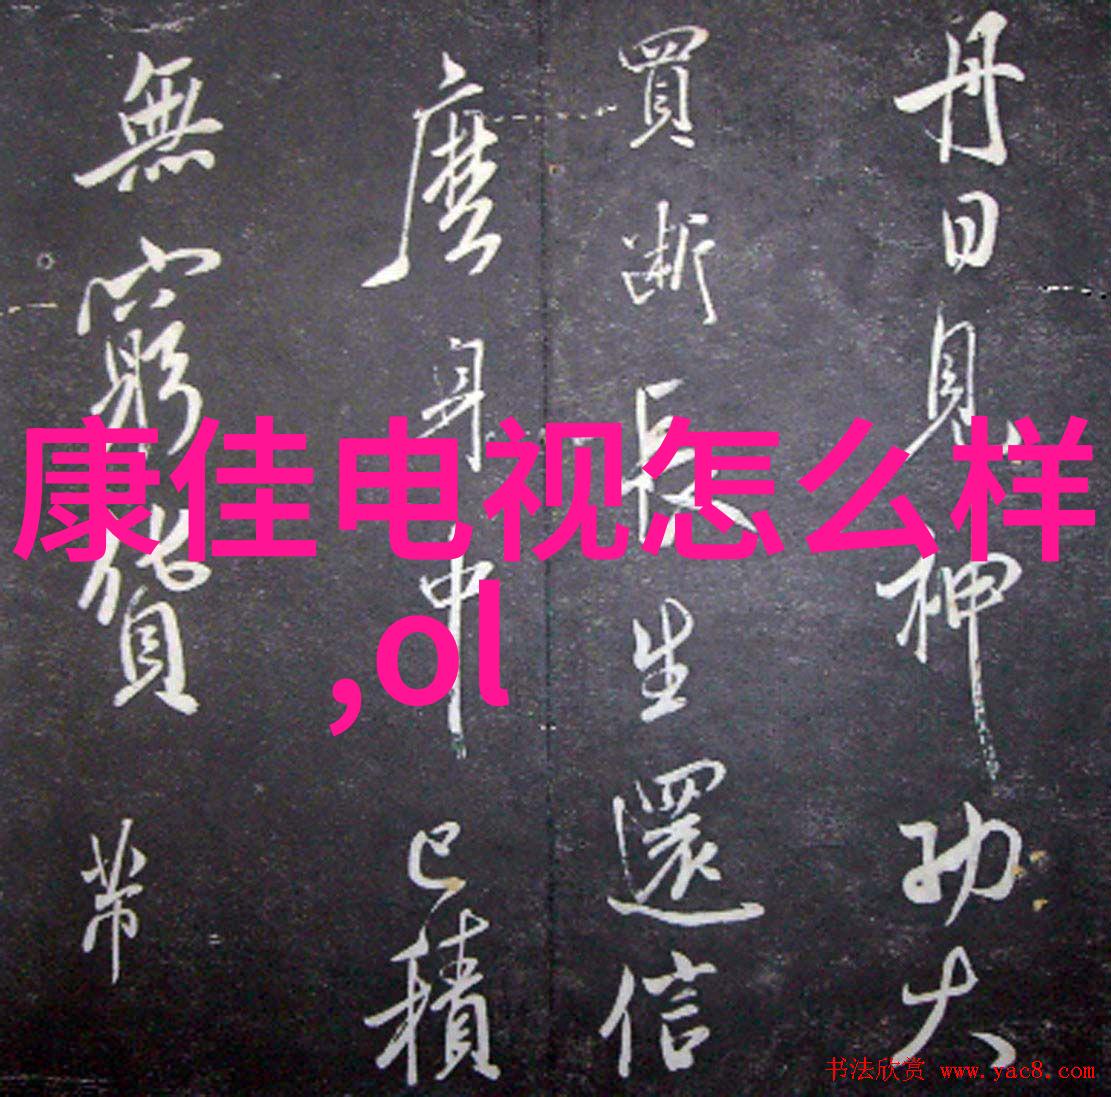 丹日見神功大
買斷長生還信
麼身中已積
無窮貨帶
康佳电视怎么样
,ol
书法欣赏 www.yac8.com